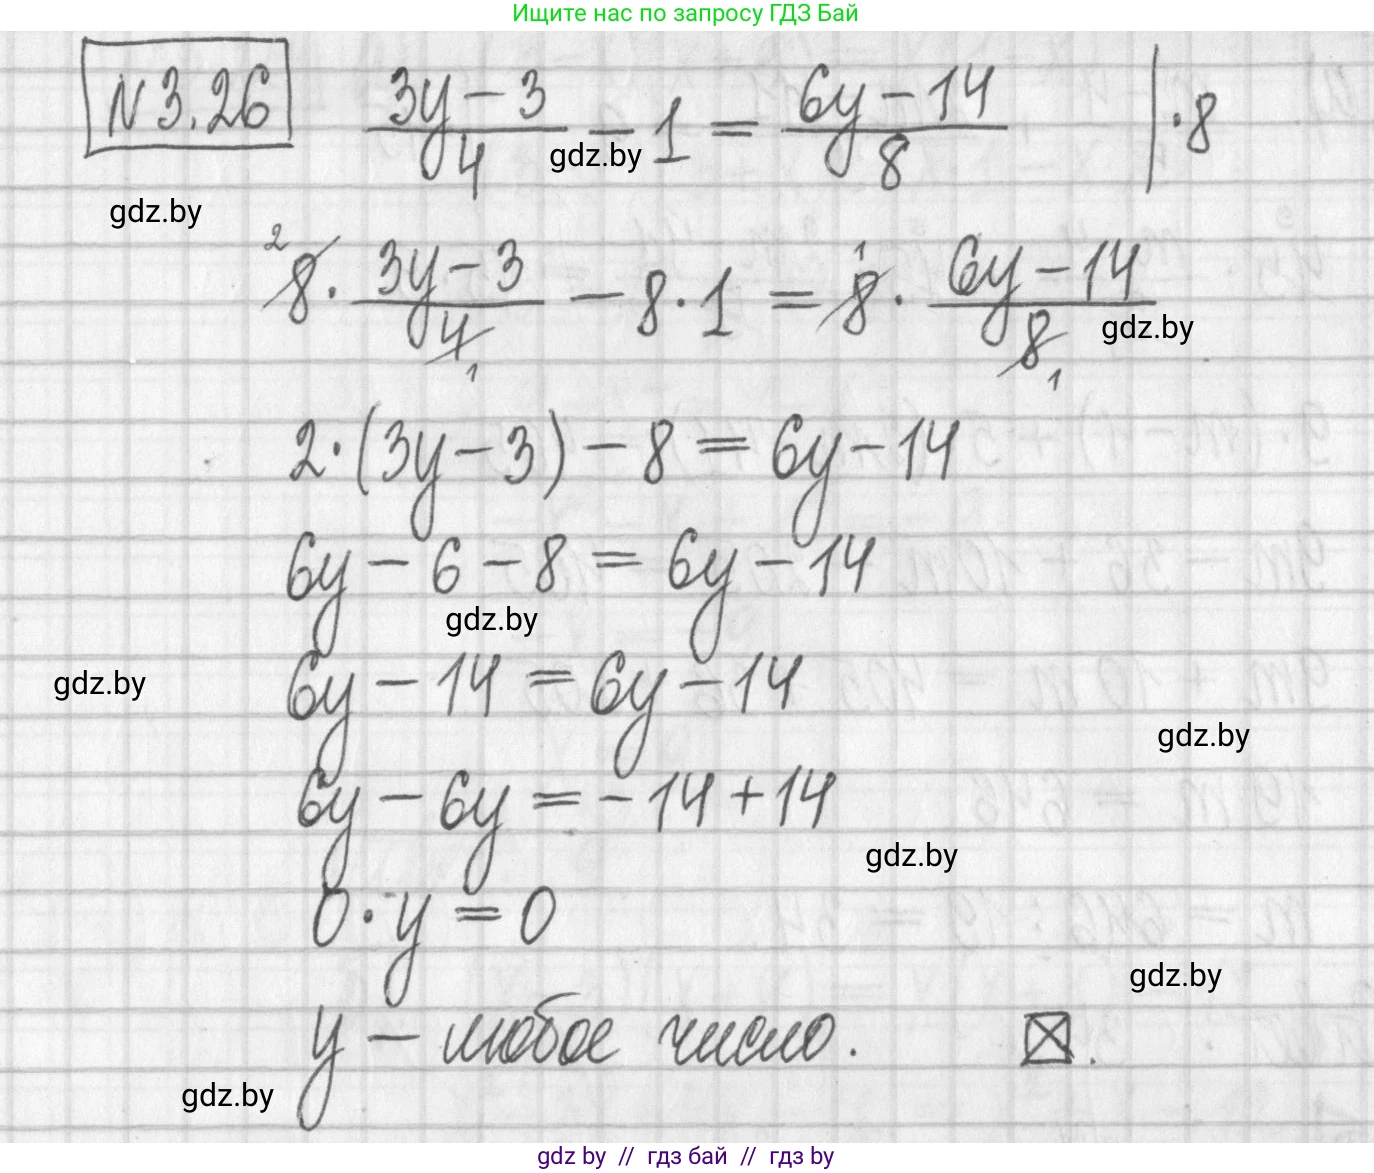 Ищите нас по запросу ГДЗ Бай
N 3.26 (3y − 3)/4 − 1 = (6y − 14)/8 | · 8
gdz.by
gdz.by
2 8 · (3y − 3)/4 1 − 8 · 1 = 1 8 · (6y − 14)/8 1
gdz.by
2 · (3y − 3) − 8 = 6y − 14
6y − 6 − 8 = 6y − 14
gdz.by
6y − 14 = 6y − 14
gdz.by
gdz.by
6y − 6y = −14 + 14
gdz.by
0 · y = 0
gdz.by
y − любое число.
gdz.by
gdz by // гдз бай // гдз by